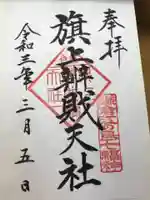 奉拝
旗上辨財天社
令和三年三月五日